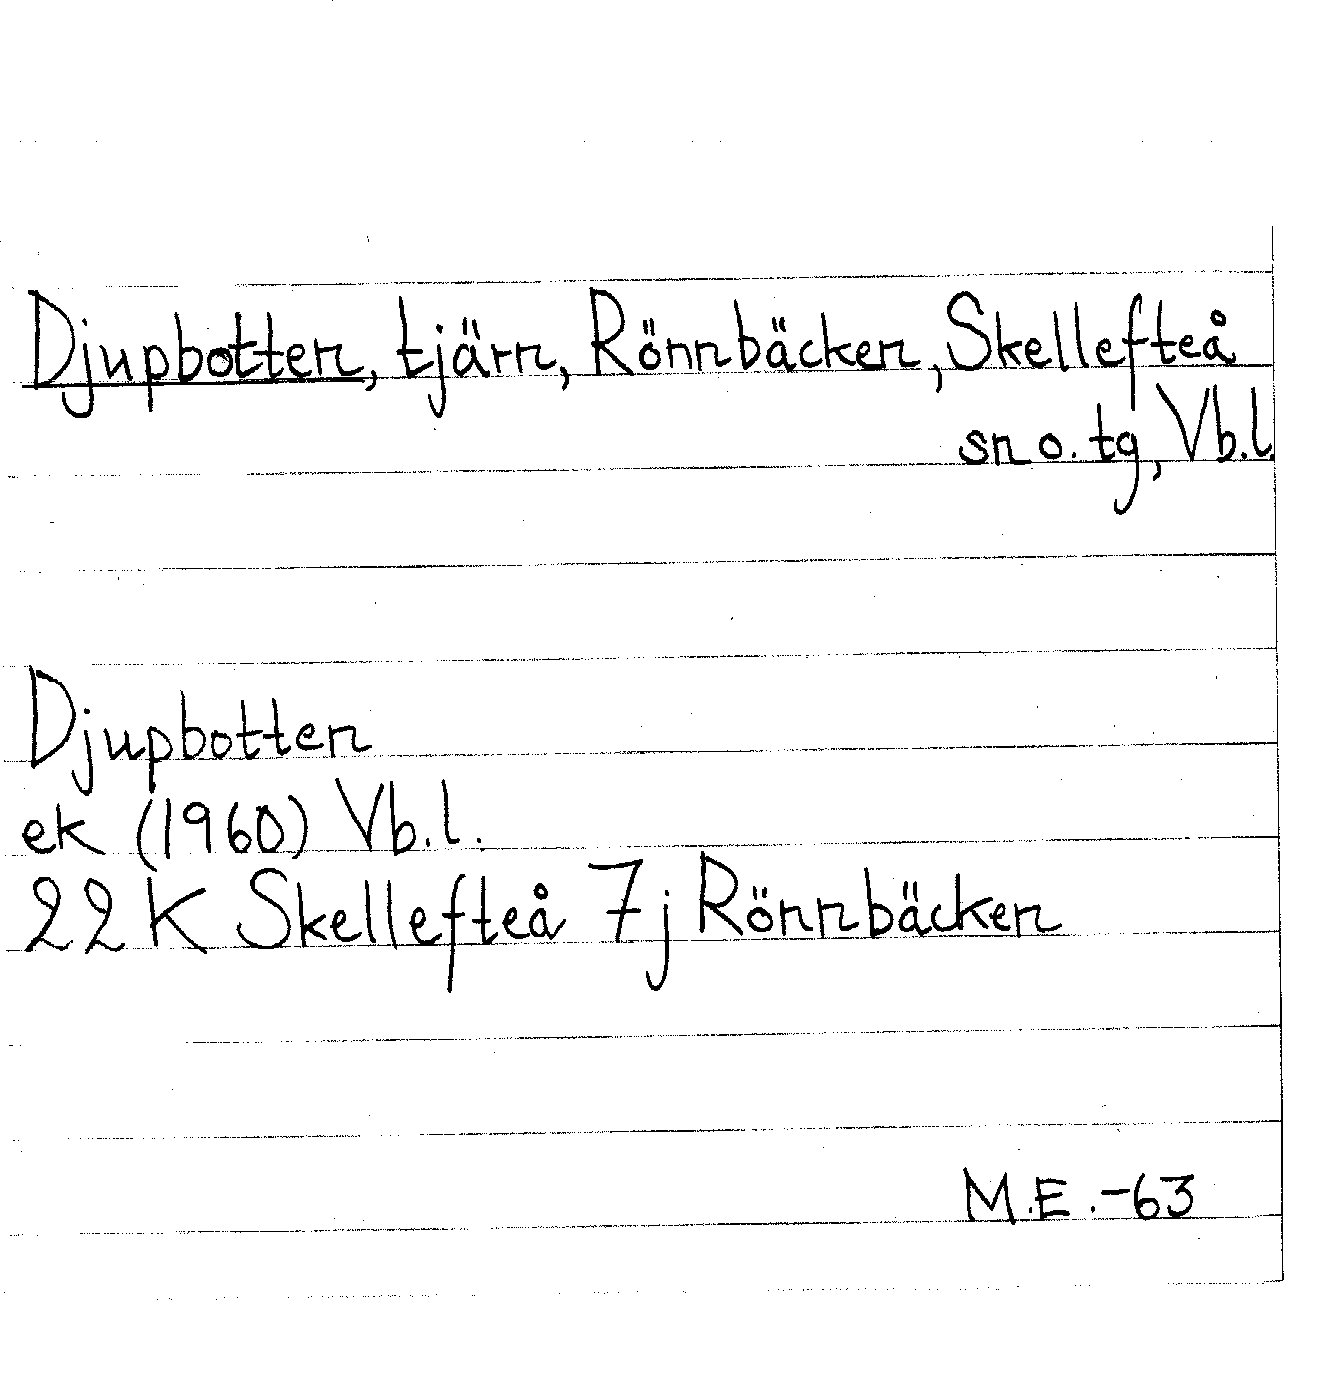 Djupbotten, tjärn, Rönnbäcken, Skellefteå
sn o. tg, Vb.l.
Djupbotten
ek (1960) Vb.l.
22 K Skellefteå 7j Rönnbäcken
M.E.-63